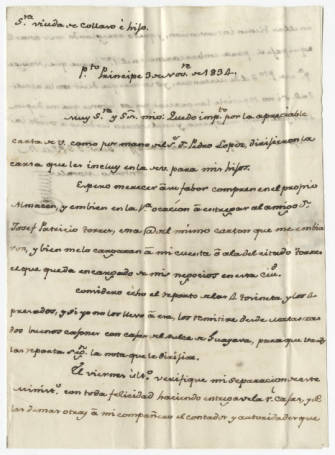 S.ra viuda de Collazo é hijo.
P.to Principe 3 de Nov.re de 1834.
Muy S.ra y S.or mio: Quedo imp.to por la apreciable
carta de V. como por mano del S.or D. Pedro Lopez, dirijieron la
carta que les incluy en la de V. para mis hijos.
Espero merecer á su fabor compren en el propio
Almacen, y embien en la 1.a ocacion á entregar al amigo D.
Josef Patricio una @ del mismo carton que me embia
ron, y bien me lo cargaran á mi cuenta ó ala del citado
el que queda encargado de mis negocios en esta ciu.d
Considero echo el reparto de los y los
y si ya no los los remitire desde
dos buenos cajones con cajas de dulce de Guayava, para que V. en
las reparta seg.n la nota que le dirijire.
El viernes verifiqué mi separacion de este
Minist.o con toda felicidad haciendo entrega de la R.l Caja, y de
las demas otras á mi compañero el contador y autoridades que